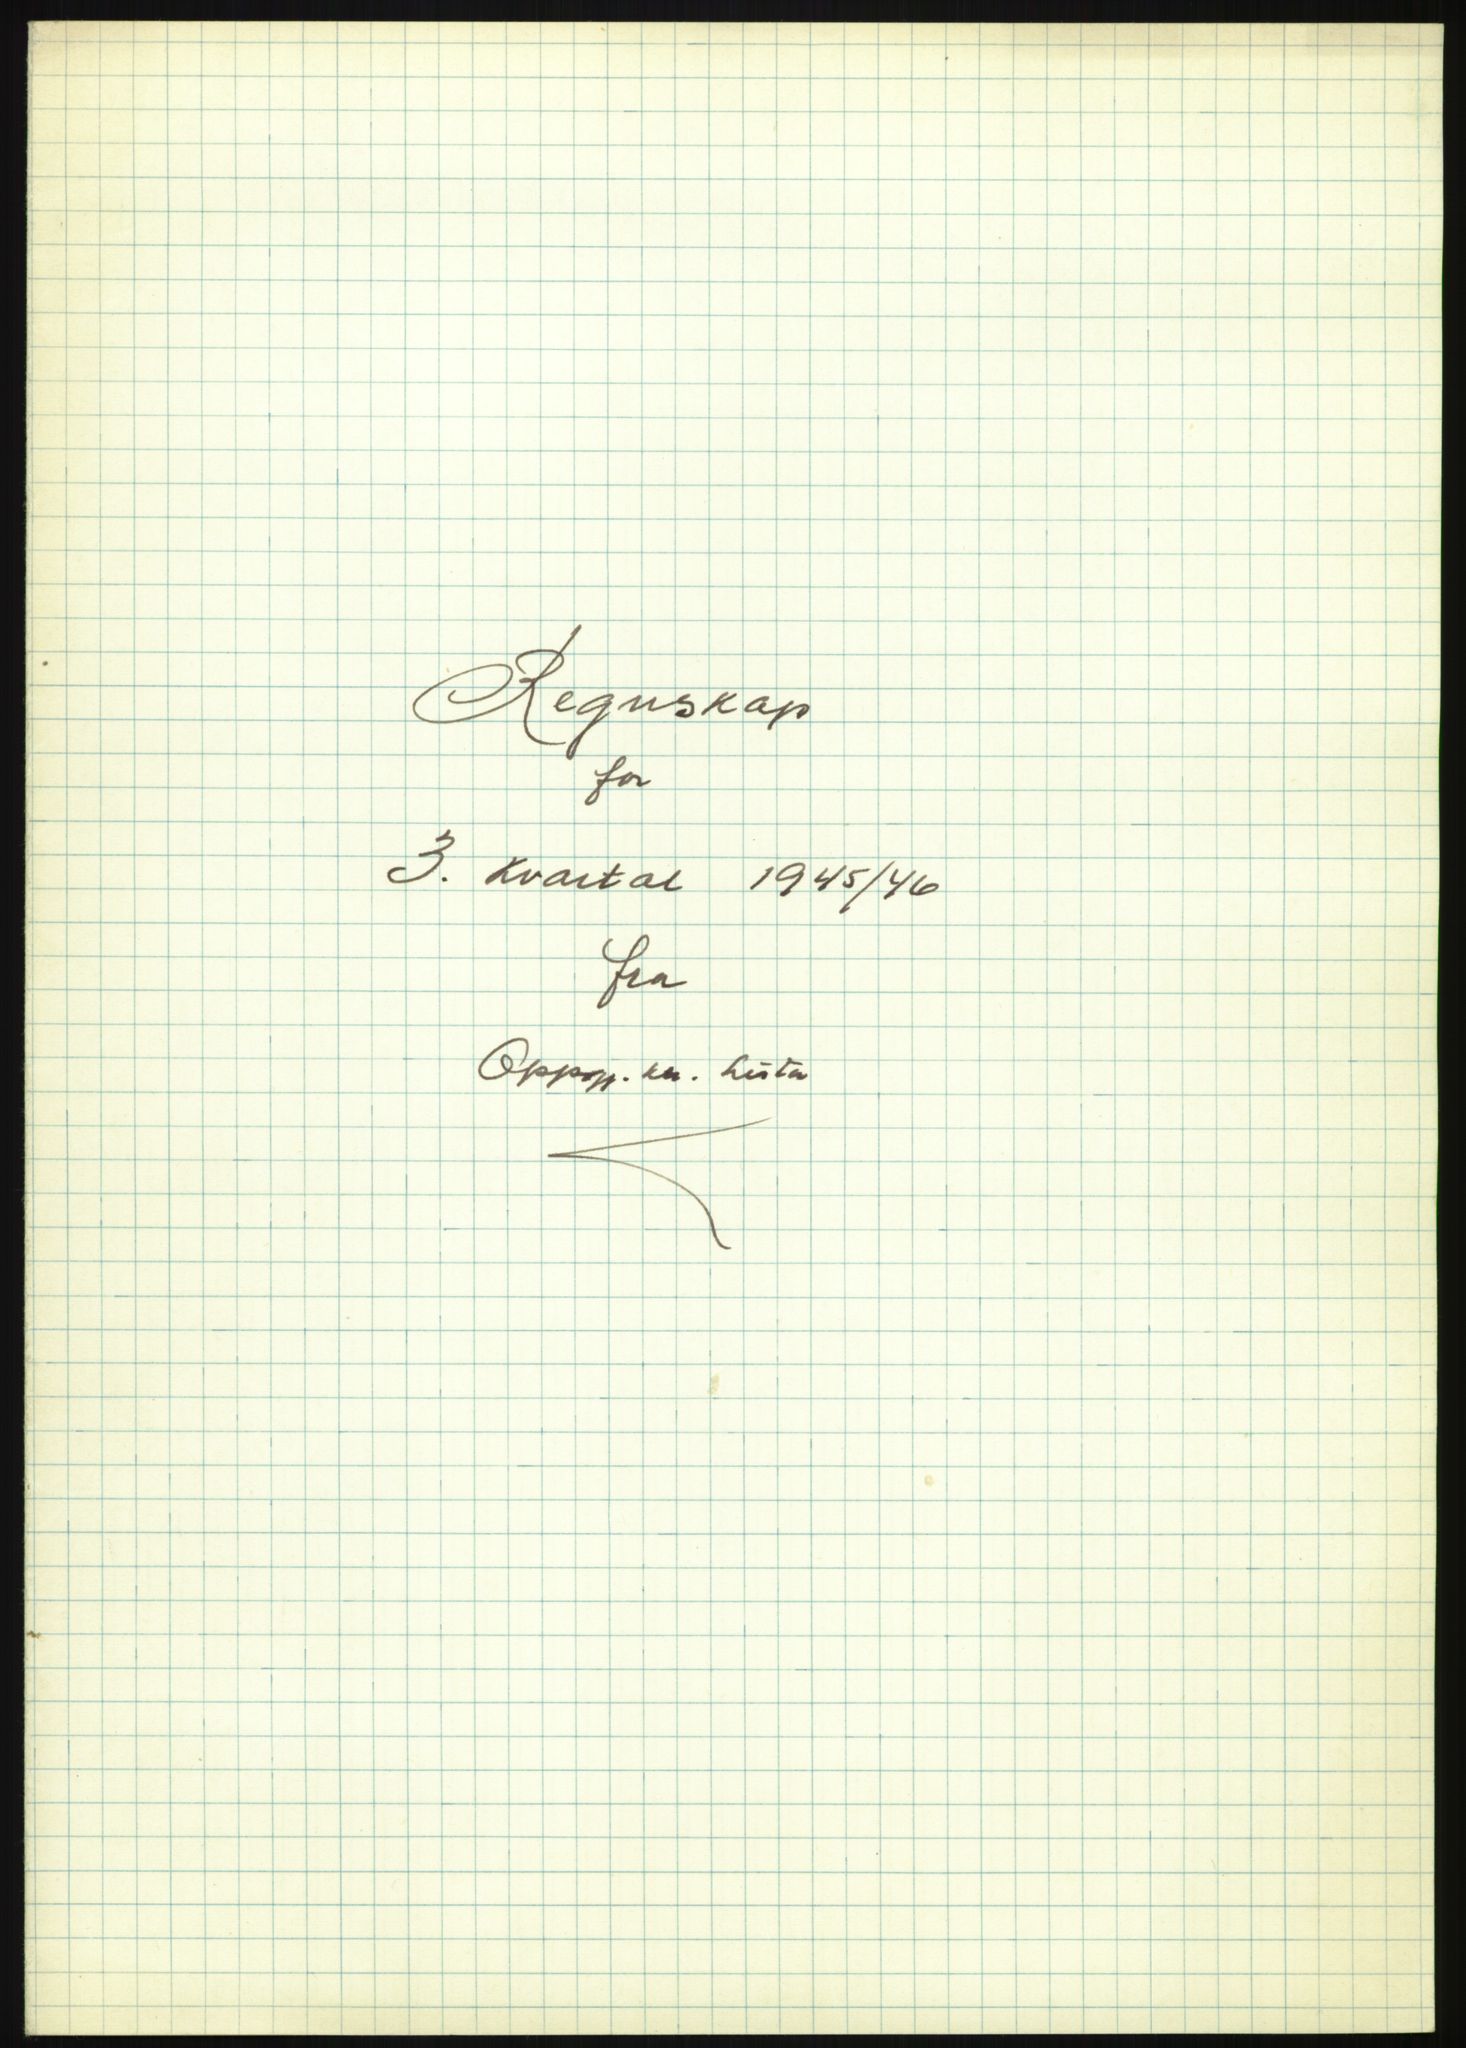 Regnskap
for
3. kvartal 1945/46
fra
Lista